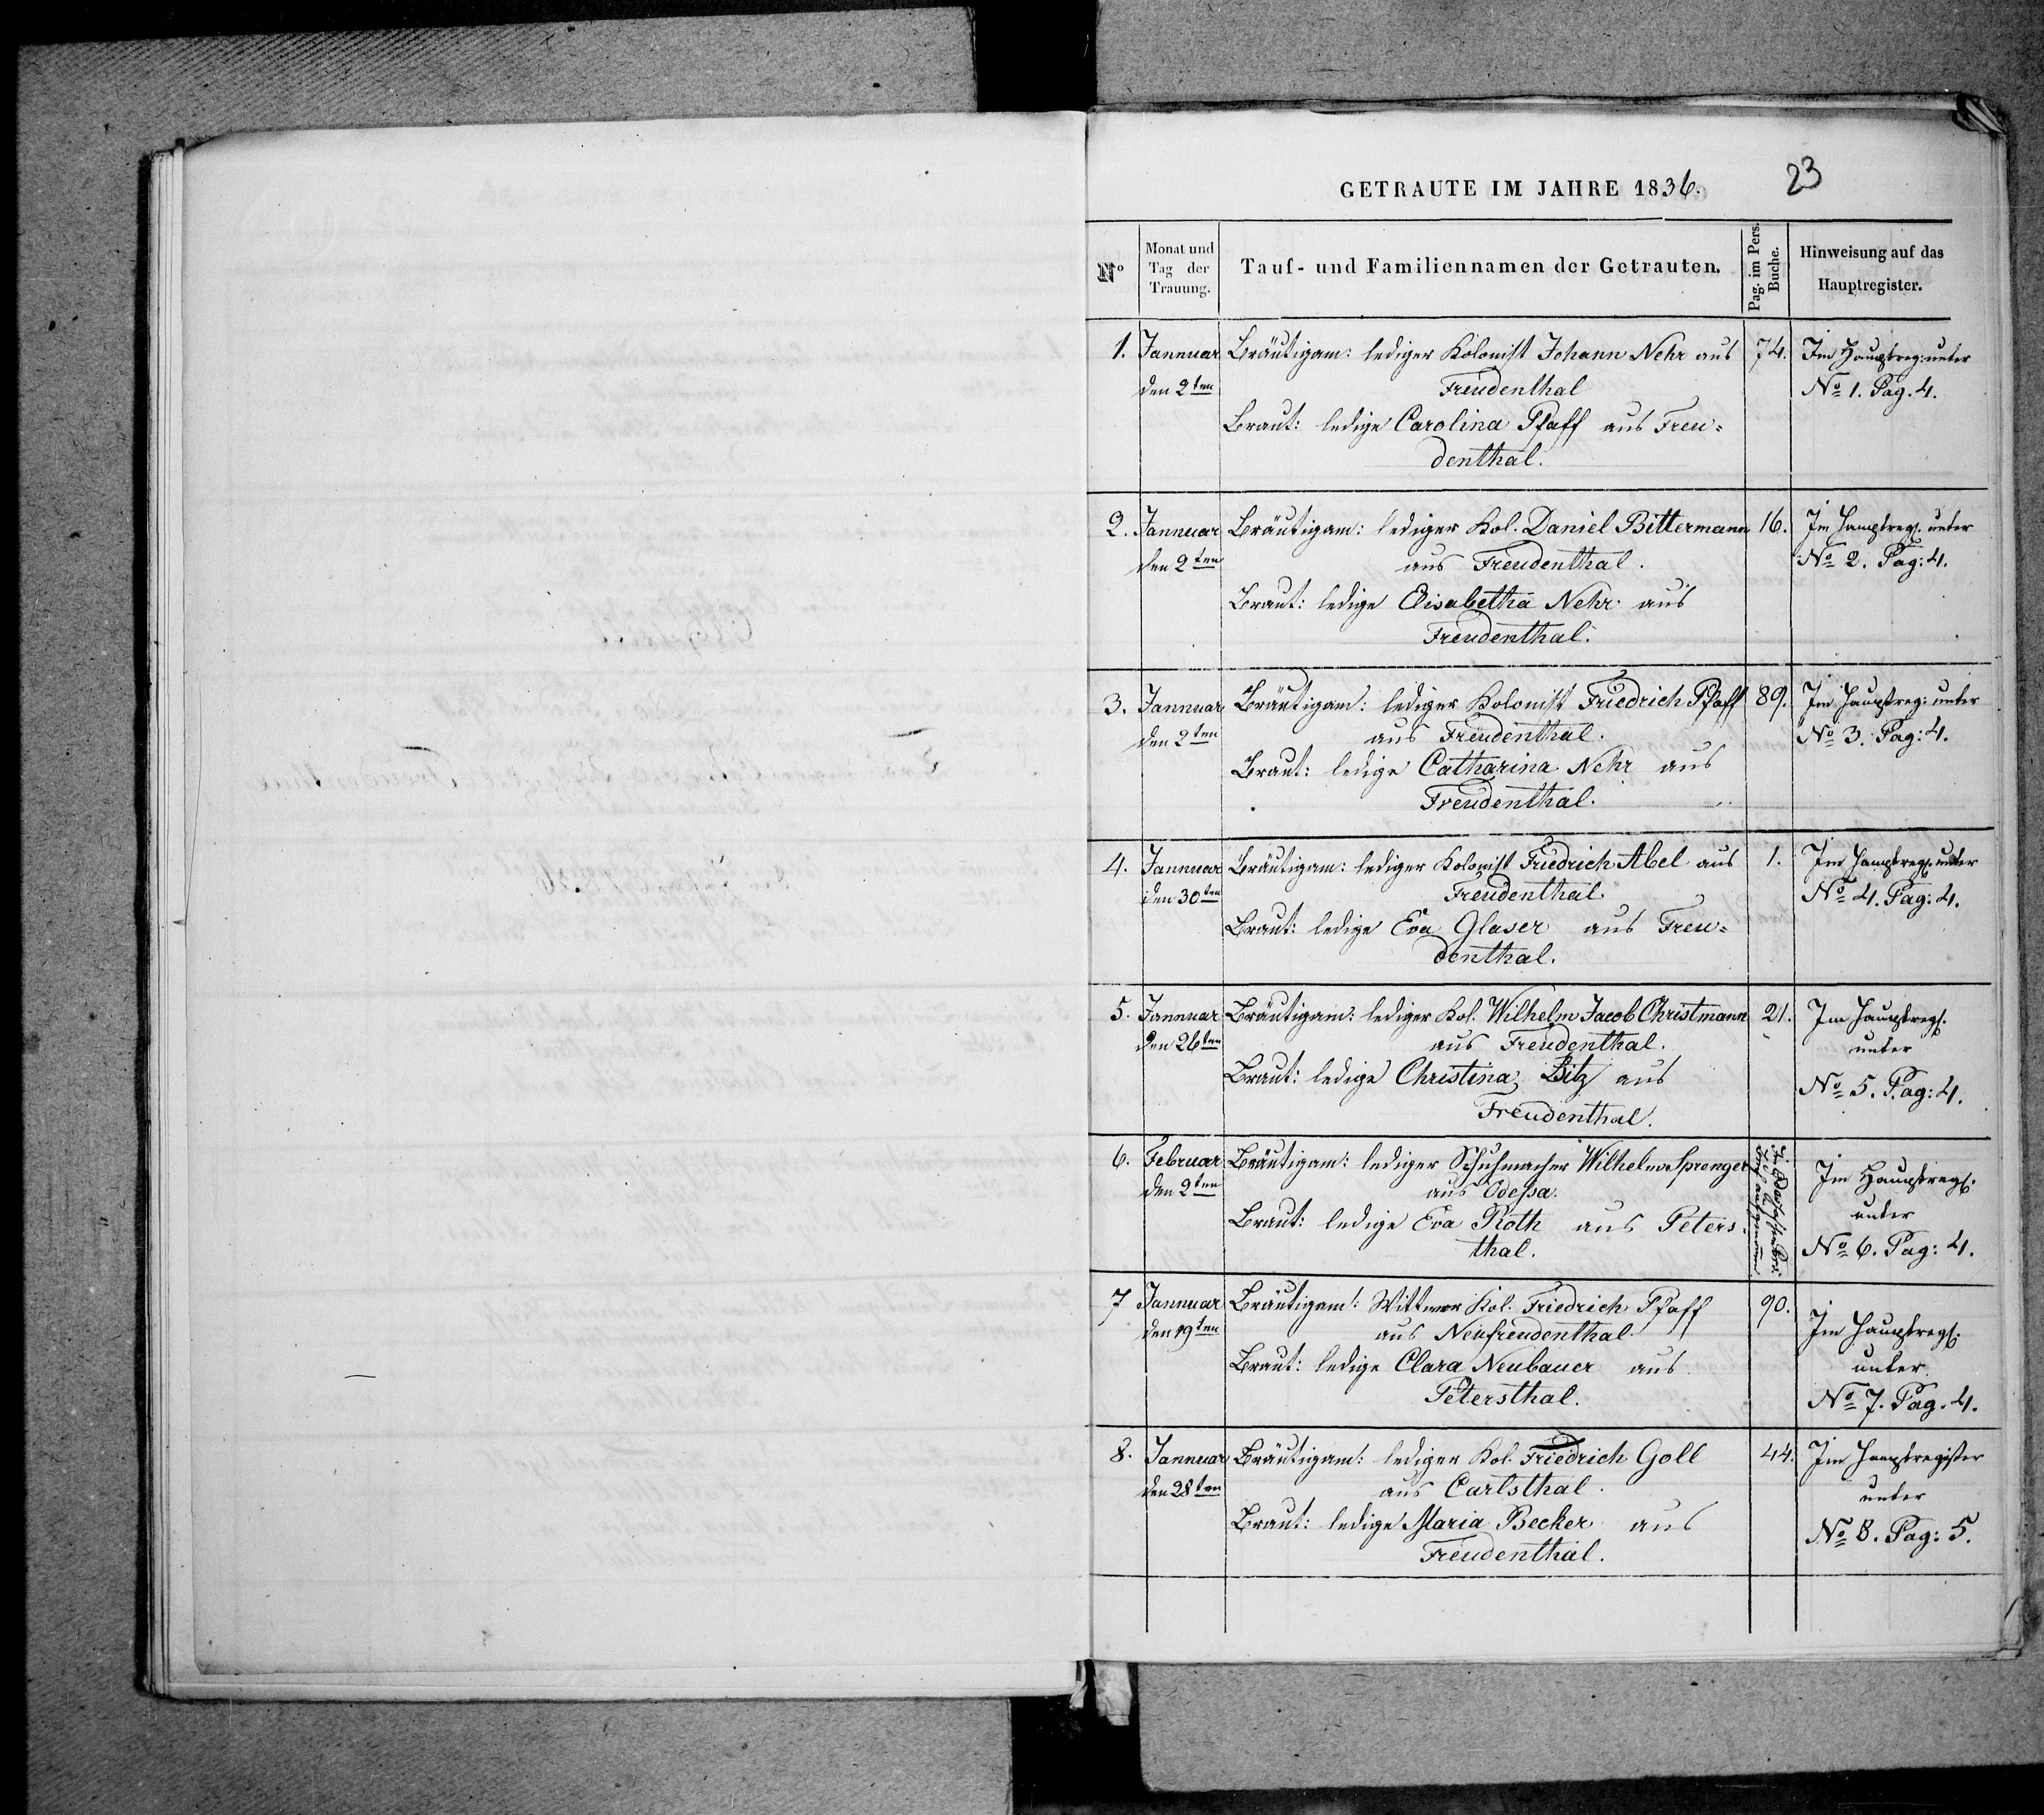 GETRAUTE IM JAHRE 1836.
23
No
Monat und Tag der Trauung.
Tauf- und Familiennamen der Getrauten.
Pag. im Pers. Buche.
Hinweisung auf das Hauptregister.
1. Jannuar Bräutigam: lediger Kolonist Johann Nehr aus 74. Im Hauptreg: unter
den 2ten Freudenthal No 1. Pag. 4.
Braut: ledige Carolina Pfaff aus Freu-
denthal.
2. Jannuar Bräutigam: lediger Kol. Daniel Bittermann 16. Im Hauptreg. unter
den 2ten aus Freudenthal. No 2. Pag: 4.
Braut: ledige Elisabetha Nehr aus
Freudenthal.
3. Jannuar Bräutigam: lediger Kolonist Friedrich Pfaff 89. Im Hauptreg: unter
den 2ten aus Freudenthal. No 3. Pag: 4.
Braut: ledige Catharina Nehr aus
Freudenthal.
4. Jannuar Bräutigam: lediger Kolonist Friedrich Abel aus 1. Im Hauptreg. unter
den 30ten Freudenthal No 4. Pag: 4.
Braut: ledige Eva Glaser aus Freu-
denthal.
5. Jannuar Bräutigam: lediger Kol. Wilhelm Jacob Christmann 21. Im Hauptreg.
den 26ten aus Freudenthal. unter
Braut: ledige Christina Bitz aus No 5. Pag: 4.
Freudenthal.
6. Februar Bräutigam: lediger Schuhmacher Wilhelm Sprenger Im Hauptreg.
den 2ten aus Odessa. unter
Braut: ledige Eva Roth aus Peters- No 6. Pag: 4.
thal.
7 Jannuar Bräutigam: Wittwer Kol. Friedrich Pfaff 90. Im Hauptreg.
den 19ten aus Neufreudenthal unter
Braut: ledige Clara Neubauer aus No 7. Pag. 4.
Petersthal.
8. Jannuar Bräutigam: lediger Kol. Friedrich Goll 44. Im Hauptregister
den 28ten aus Carlsthal. unter
Braut: ledige Maria Becker aus No 8. Pag: 5.
Freudenthal.